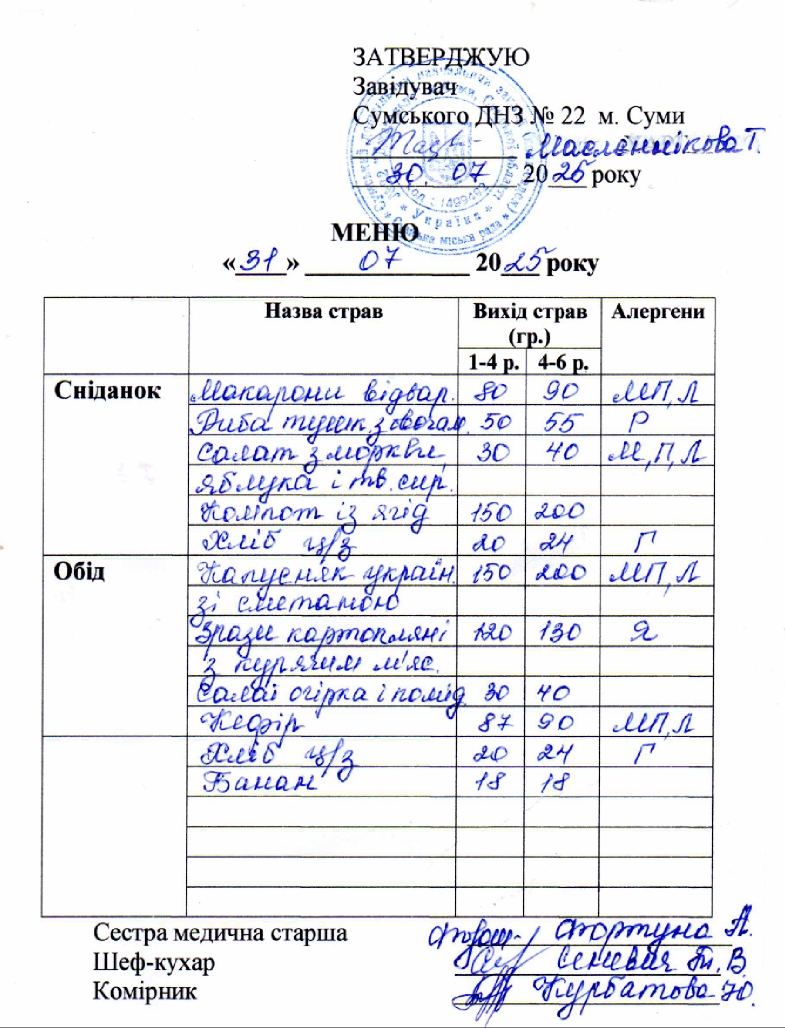 ЗАТВЕРДЖУЮ
Завідувач
Сумського ДНЗ № 22 м. Суми
Масленнікова Т.
30. 07 2025 року
МЕНЮ
«31» 07 2025 року
Назва страв Вихід страв (гр.) Алергени
1-4 р. 4-6 р.
Сніданок Макарони відвар. 80 90 МП,Л
Риба тушк. з овочам. 50 55 Р
Салат з моркви, 30 40 М,П,Л
яблука і тв. сир.
Компот із ягід 150 200
Хліб ц/з 20 24 Г
Обід Капусняк україн. 150 200 МП,Л
зі сметаною
Зрази картопляні 120 130 Я
з курячим м'яс.
Салат огірка і помід 30 40
Кефір 87 90 МП,Л
Хліб ц/з 20 24 Г
Банан 18 18
Сестра медична старша Фортуна А.
Шеф-кухар Сеневич Т. В.
Комірник Курбатова Ю.